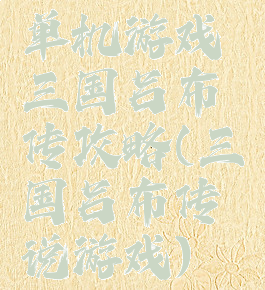 单机游戏
三国吕布
传攻略(三
国吕布传
说游戏)